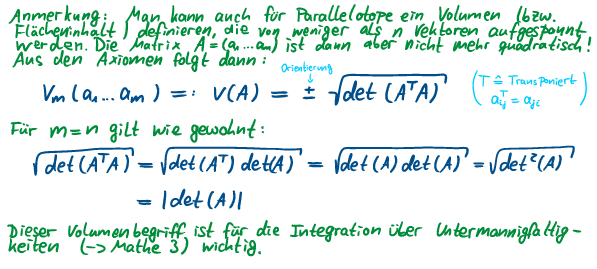 Anmerkung: Man kann auch für Parallelotope ein Volumen (bzw.
Flächeninhalt) definieren, die von weniger als n Vektoren aufgespannt
werden. Die Matrix A = (a₁ ... aₘ) ist dann aber nicht mehr quadratisch!
Aus den Axiomen folgt dann:
Orientierung
↓
Vₘ(a₁ ... aₘ) =: V(A) = ± √det(AᵀA)
(T ≙ Transponiert
aᵀᵢⱼ = aⱼᵢ)
Für m=n gilt wie gewohnt:
√det(AᵀA) = √det(Aᵀ) det(A) = √det(A) det(A) = √det²(A)
= |det(A)|
Dieser Volumenbegriff ist für die Integration über Untermannigfaltig-
keiten (-> Mathe 3) wichtig.